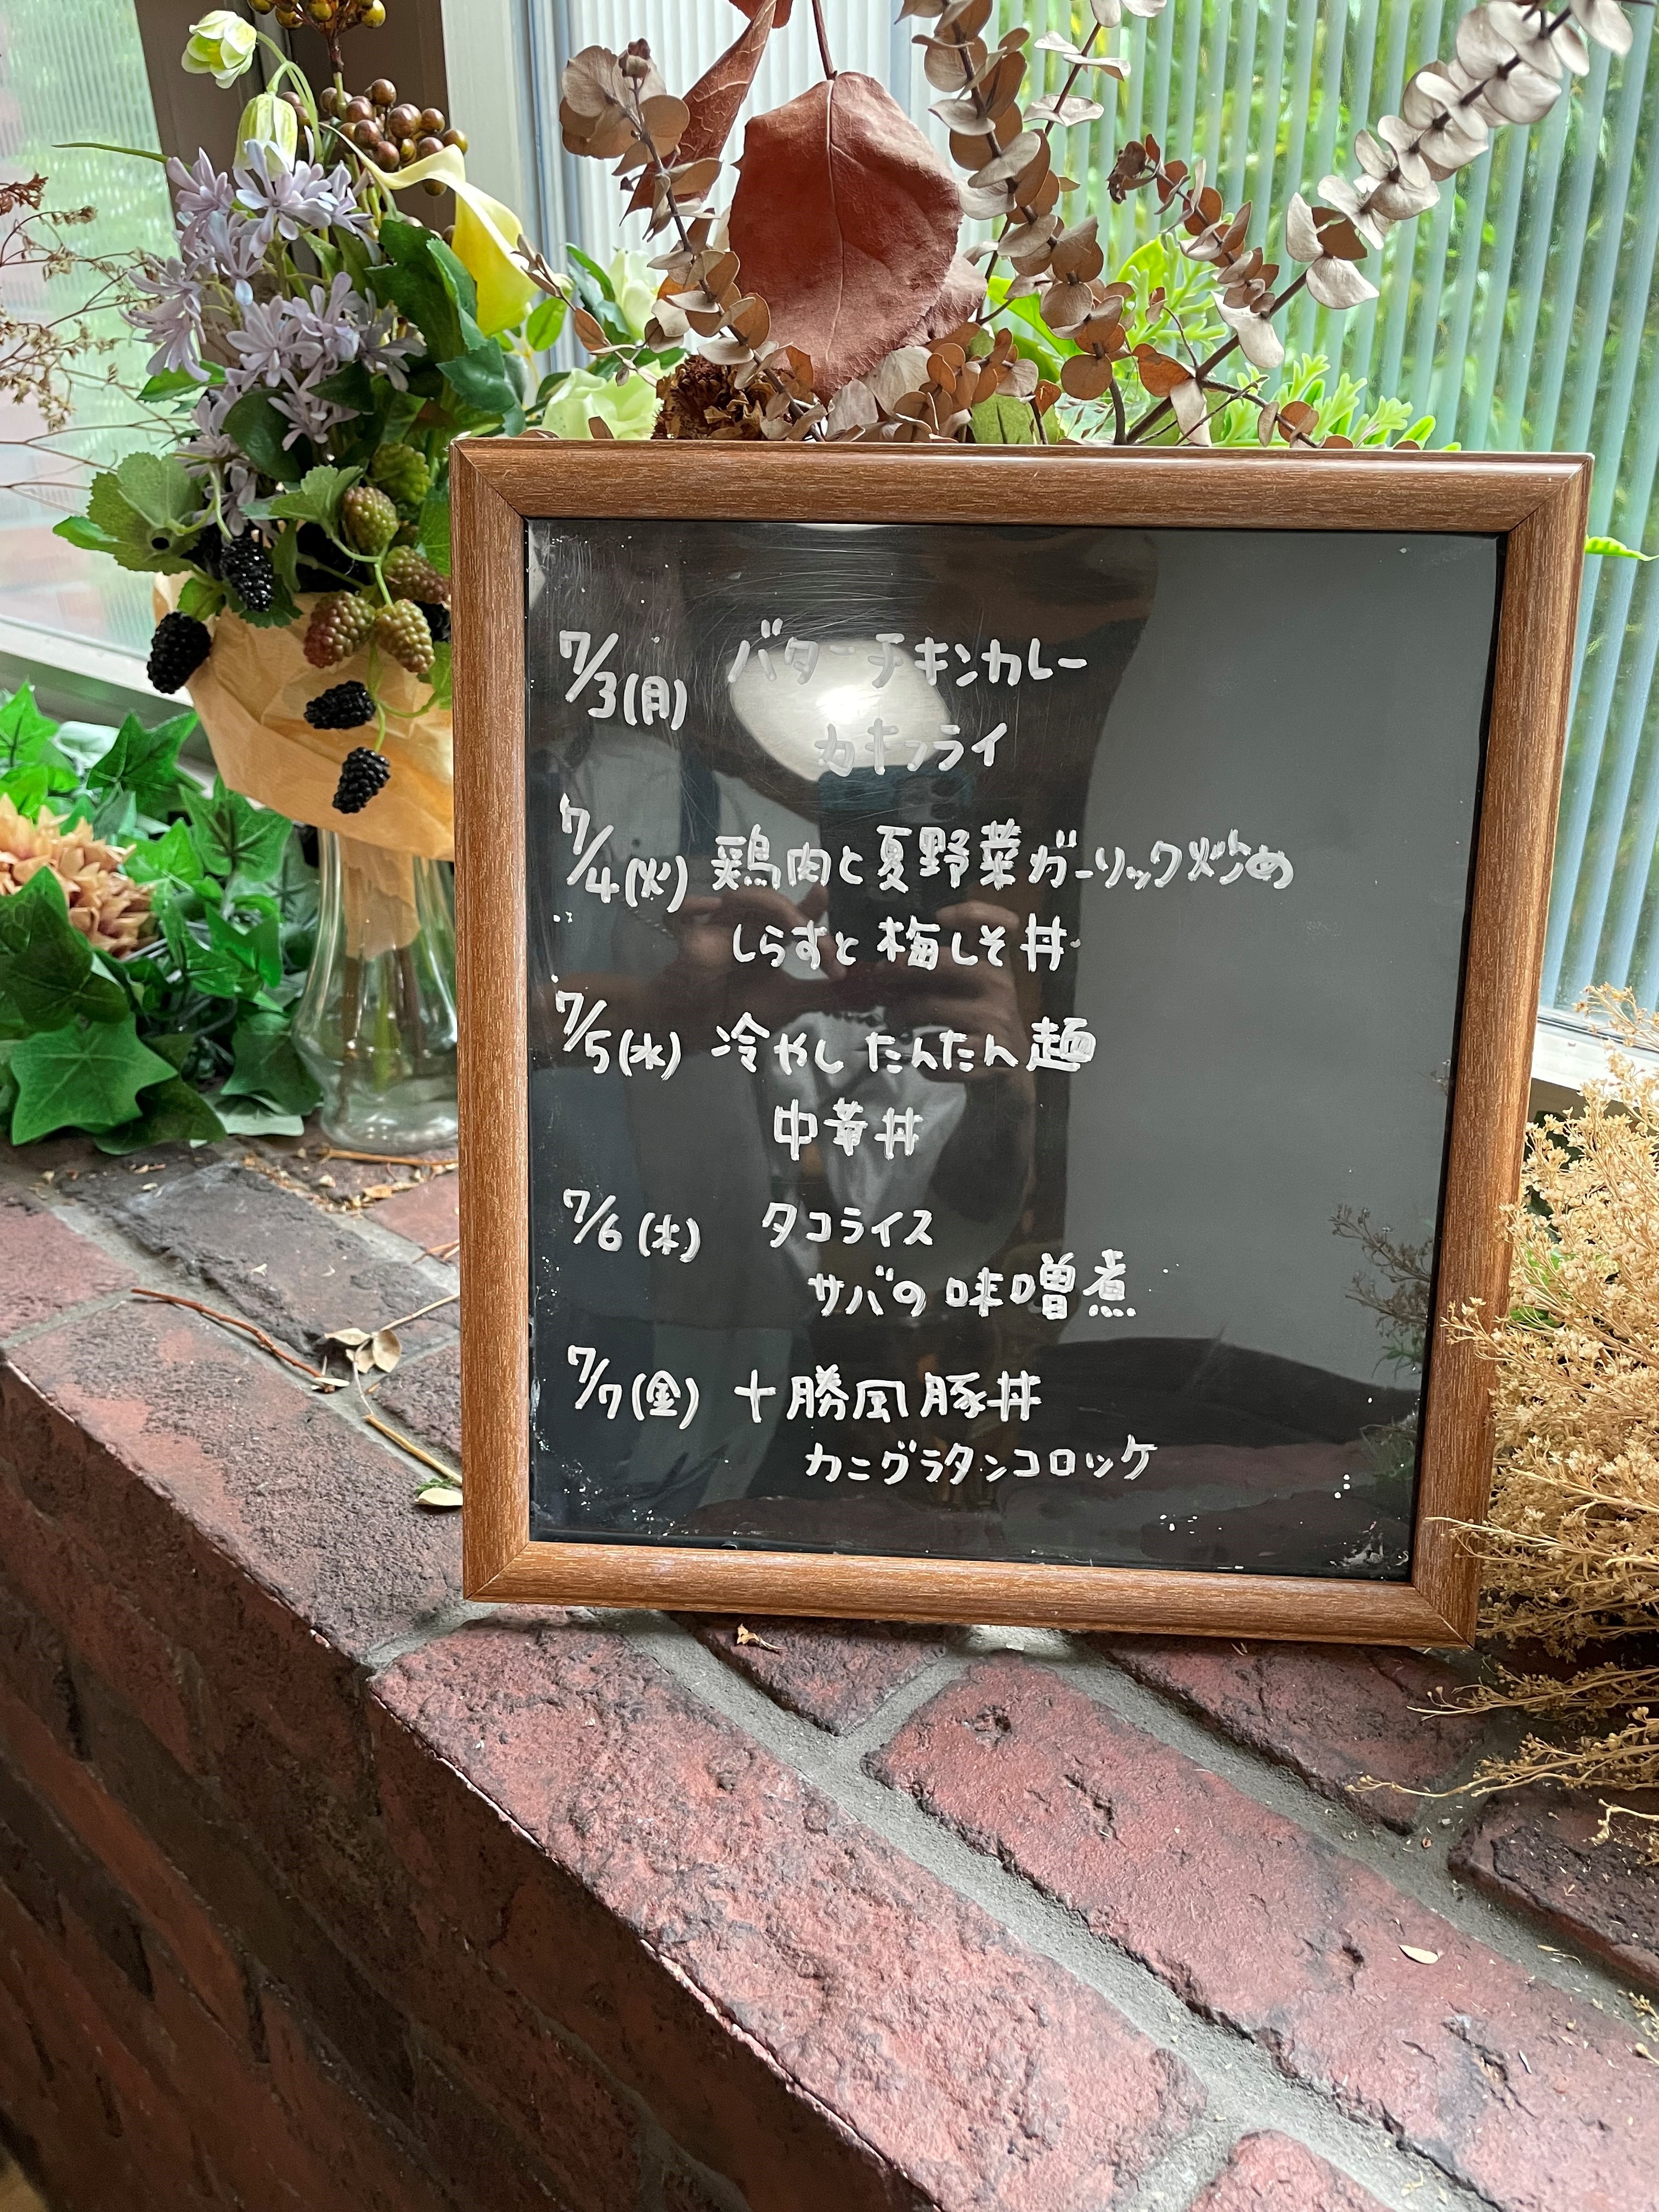 7/3(月) バターチキンカレー
カキフライ
7/4(火) 鶏肉と夏野菜ガーリック炒め
しらすと梅しそ丼
7/5(水) 冷やしたんたん麺
中華丼
7/6(木) タコライス
サバの味噌煮
7/7(金) 十勝風豚丼
カニグラタンコロッケ